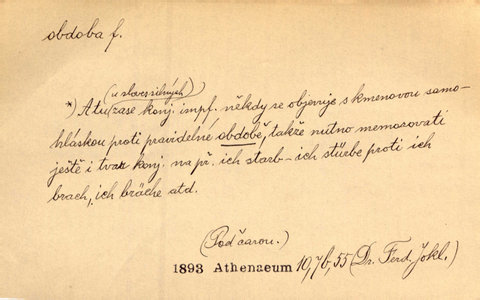 obdoba f.
(u sloves silných)
*) A tu zase konj. impf. někdy se objevuje s kmenovou samo-
hláskou proti pravidelné obdobě, takže nutno memorovati
ještě i tvar konj. na př. ich starb - ich stürbe proti ich
brach, ich bräche atd.
(Pod čarou.)
1893 Athenaeum 10, 7b, 55 (Dr. Ferd. Jokl.)